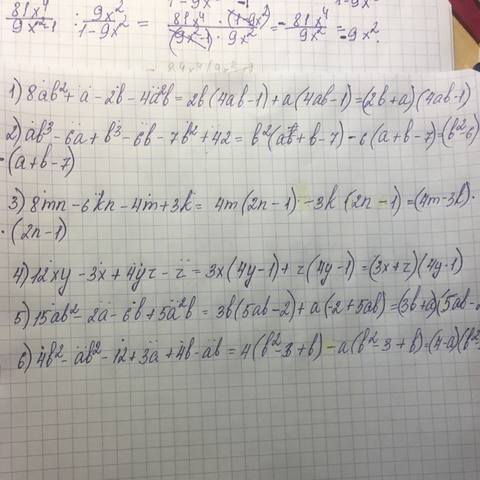 81x⁴/9x²-1 : 9x²/1-9x² = 81x⁴ · (1-9x²)/(9x²-1) · 9x² = -81x⁴/9x² = -9x²
1) 8ab² + a - 2b - 4a²b = 2b(4ab-1) + a(4ab-1) = (2b+a)(4ab-1)
2) ab³ - 6a + b³ - 6b - 7b² + 42 = b²(a+b-7) - 6(a+b-7) = (b²-6)
·(a+b-7)
3) 8mn - 6kn - 4m + 3k = 4m(2n-1) - 3k·(2n-1) = (4m-3k)·
·(2n-1)
4) 12xy - 3x + 4yz - z = 3x(4y-1) + z(4y-1) = (3x+z)(4y-1)
5) 15ab² - 2a - 6b + 5a²b = 3b(5ab-2) + a(-2+5ab) = (3b+a)(5ab-
6) 4b² - ab² - 12 + 3a + 4b - ab = 4(b²-3+b) - a(b²-3+b) = (4-a)(b²-